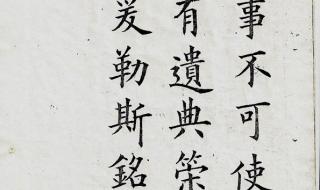 事不可使
有遺典榮
爰勒斯銘